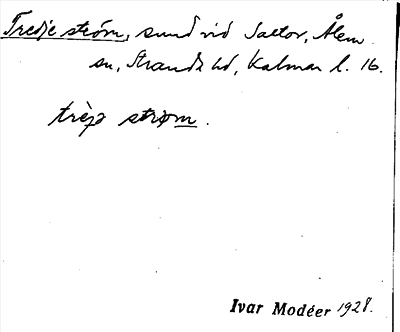 Tredje ström, sund vid Saltor, Ålem
sn, Strands hd, Kalmar l. 16.
trèjə strøm.
Ivar Modéer 1928.